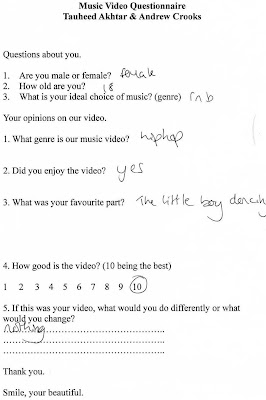 Music Video Questionnaire
Tauheed Akhtar & Andrew Crooks
Questions about you.
1. Are you male or female? female
2. How old are you? 18
3. What is your ideal choice of music? (genre) rnb
Your opinions on our video.
1. What genre is our music video? hiphop
2. Did you enjoy the video? yes
3. What was your favourite part? The little boy dancing
4. How good is the video? (10 being the best)
1 2 3 4 5 6 7 8 9 10
5. If this was your video, what would you do differently or what
would you change?
nothing
Thank you.
Smile, your beautiful.